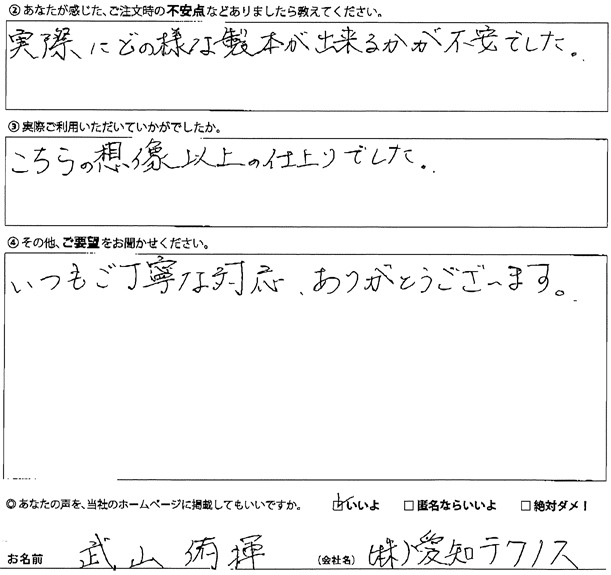 ②あなたが感じた、ご注文時の不安点などありましたら教えてください。
実際にどの様な製本が出来るかが不安でした。
③実際ご利用いただいていかがでしたか。
こちらの想像以上の仕上りでした。
④その他、ご要望をお聞かせください。
いつもご丁寧な対応、ありがとうございます。
◎あなたの声を、当社のホームページに掲載してもいいですか。 ☑いいよ □匿名ならいいよ □絶対ダメ！
お名前 武山 侑揮 （会社名） (株)愛知テクノス